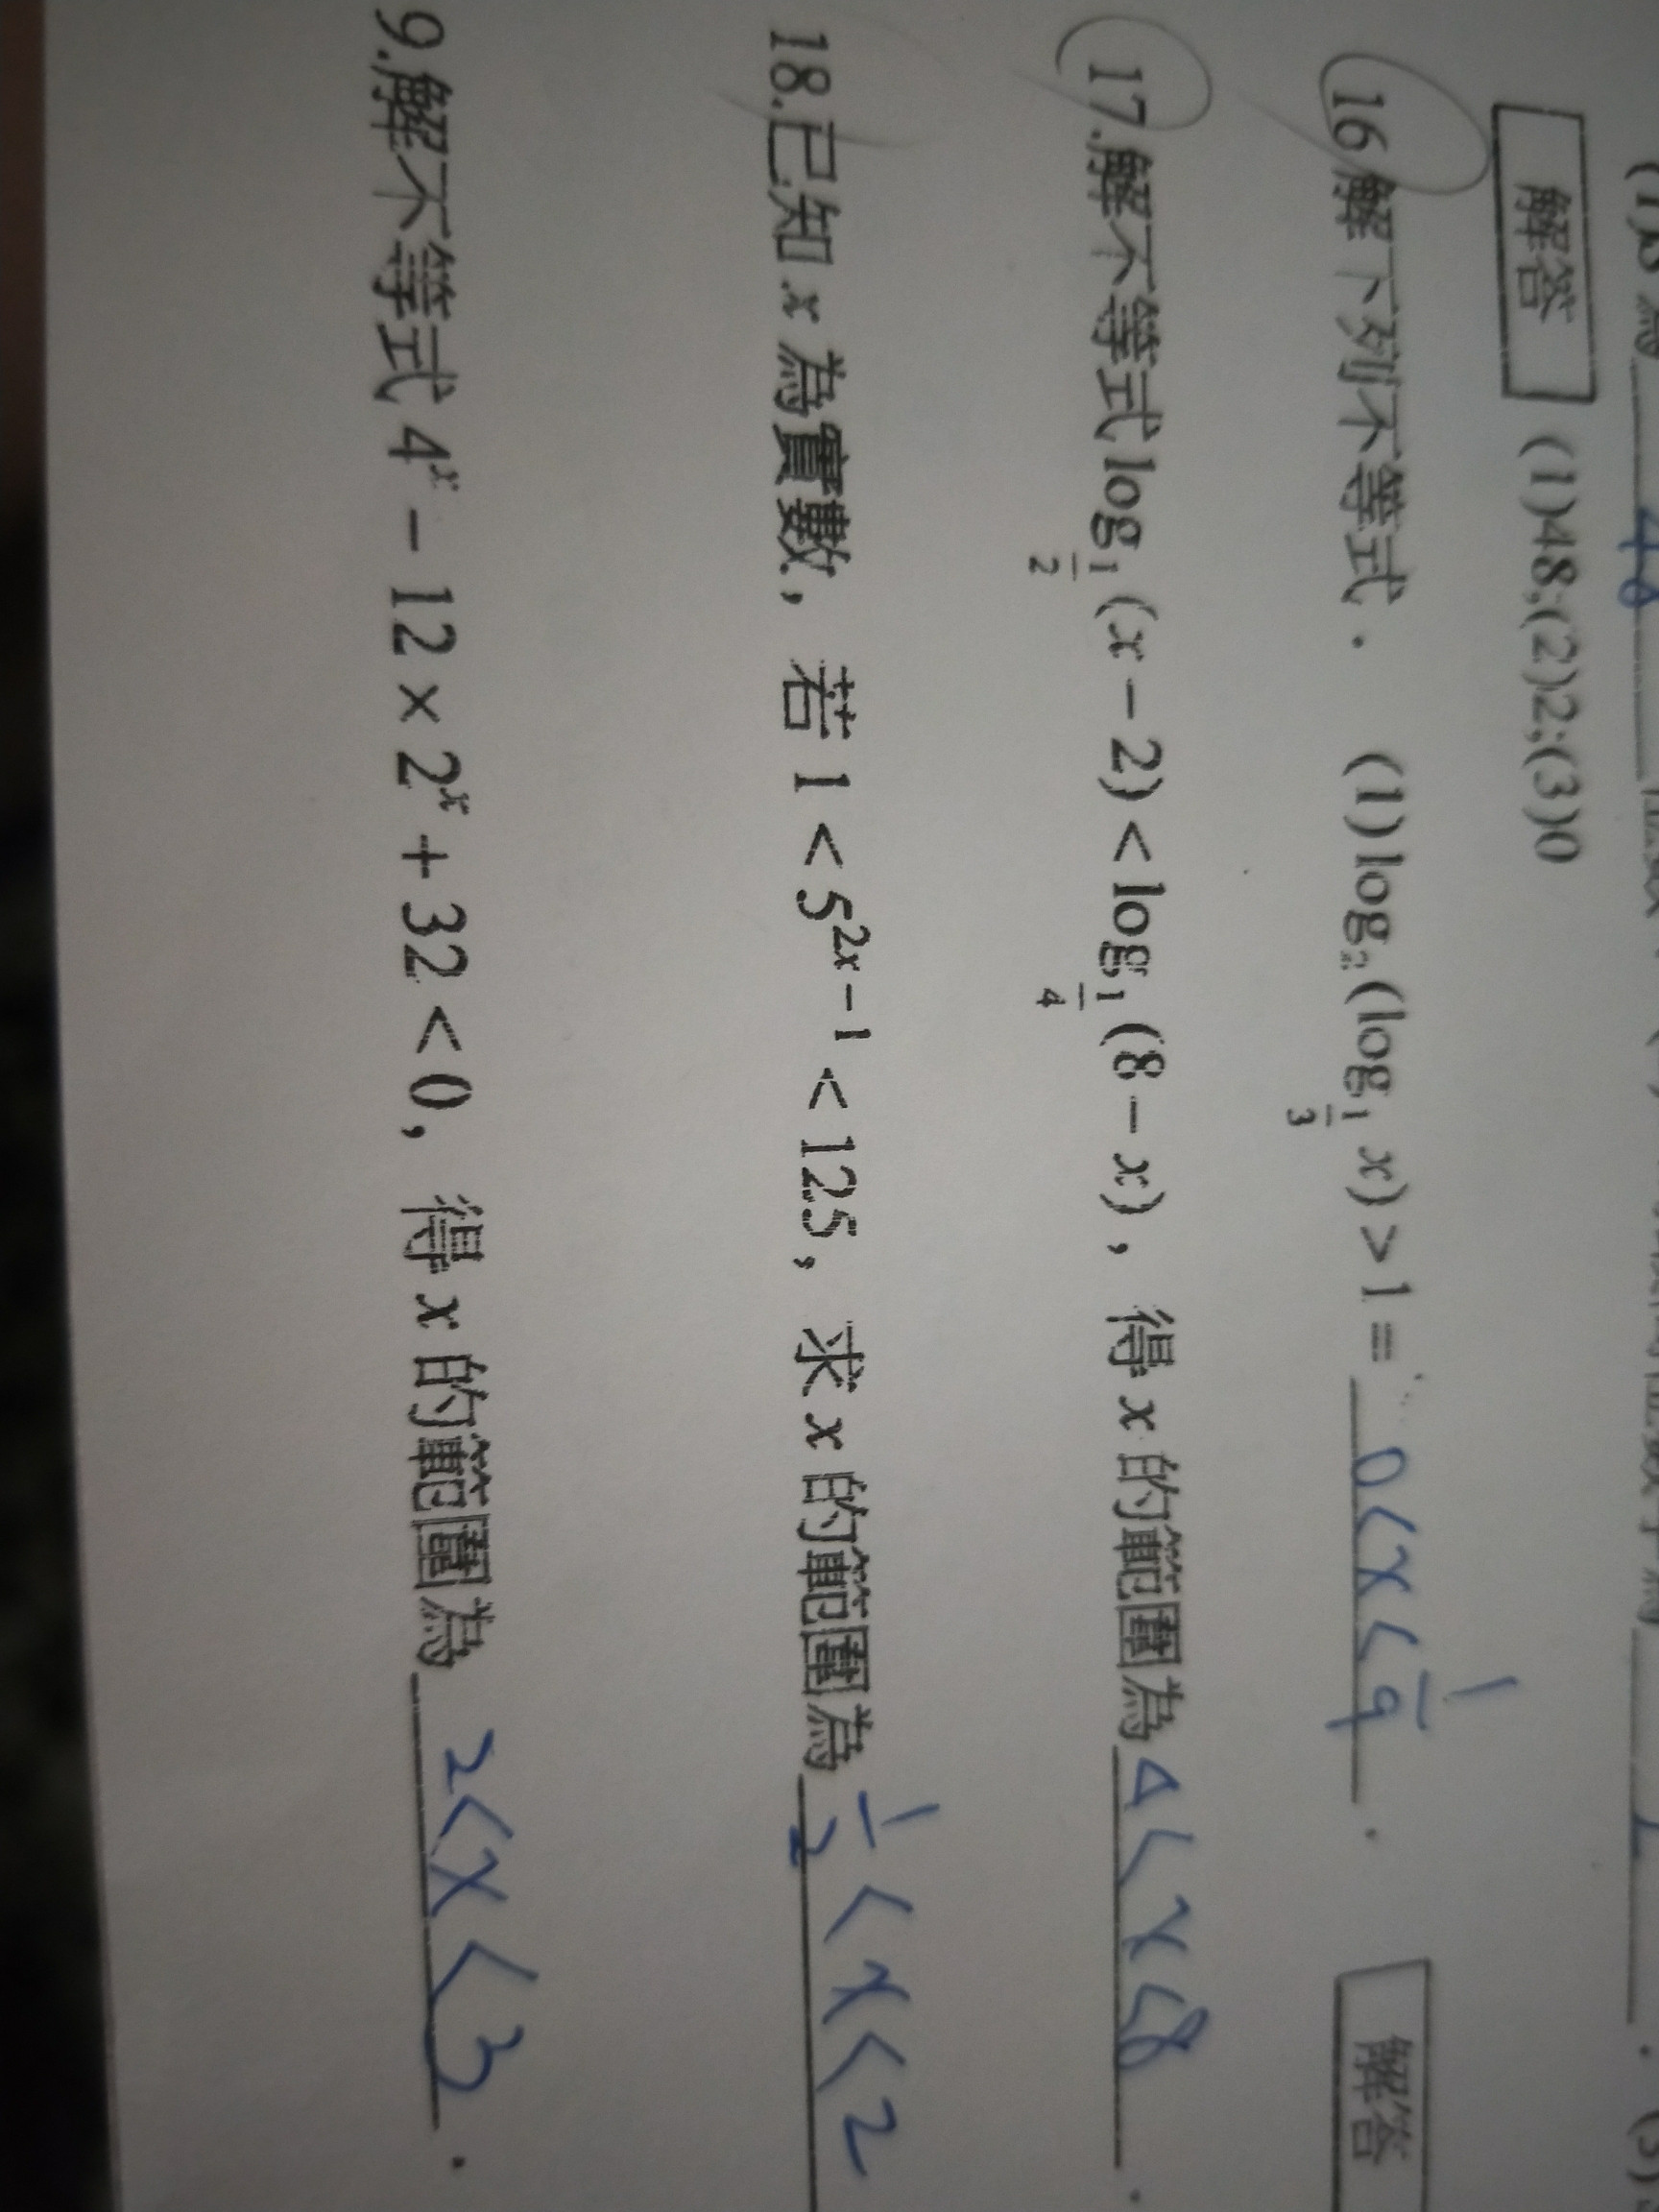 (1)
解答 (1)48;(2)2;(3)0
16 解下列不等式． (1) log₂(log_{1/3} x) > 1 = 0<x<1/9 ． 解答
17.解不等式 log_{1/2}(x − 2) < log_{1/4}(8 − x)，得 x 的範圍為 4<x<8 ．
18.已知 x 為實數，若 1 < 5^{2x−1} < 125，求 x 的範圍為 1/2 < x < 2
9.解不等式 4^x − 12 × 2^x + 32 < 0，得 x 的範圍為 2<x<3 ．